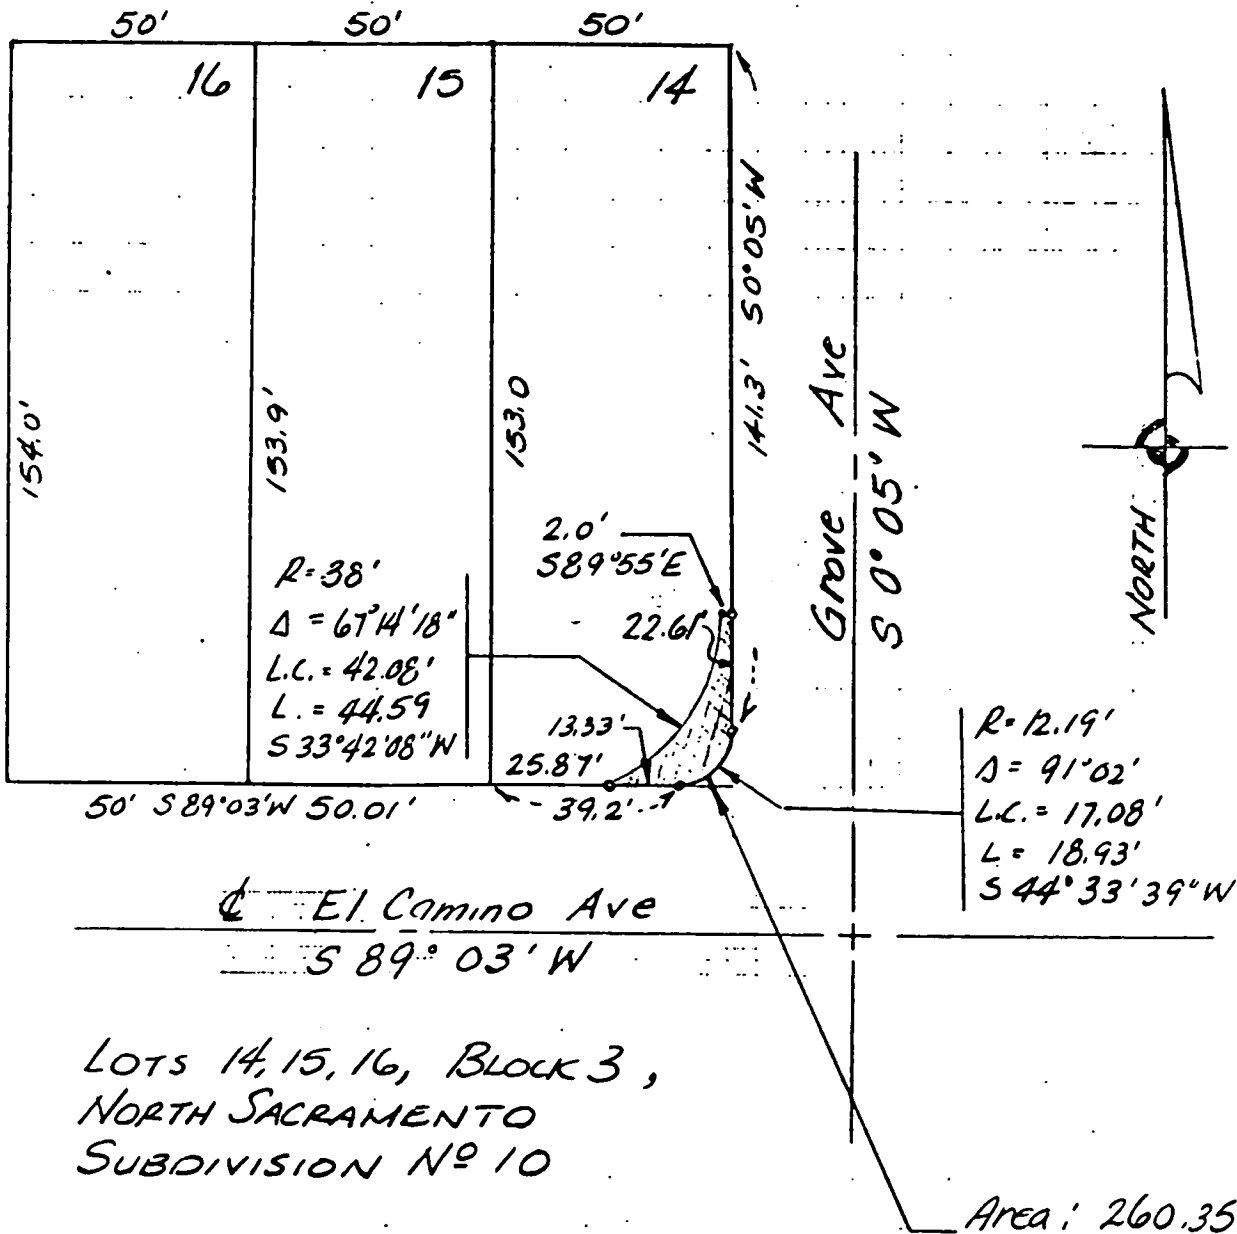 50' 50' 50'
16 15 14
S0°05'W
141.3'
154.0'
153.9'
153.0
Grove Ave
S 0°05' W
NORTH
2.0'
S89°55'E
22.61'
R=38'
Δ = 67°14'18"
L.C. = 42.08'
L. = 44.59
S 33°42'08"W
13.33'
25.87'
50' S89°03'W 50.01'
39.2'
R=12.19'
Δ= 91°02'
L.C.= 17.08'
L= 18.93'
S 44°33'39"W
℄ El Camino Ave
S 89° 03' W
LOTS 14, 15, 16, BLOCK 3,
NORTH SACRAMENTO
SUBDIVISION Nº 10
Area: 260.35